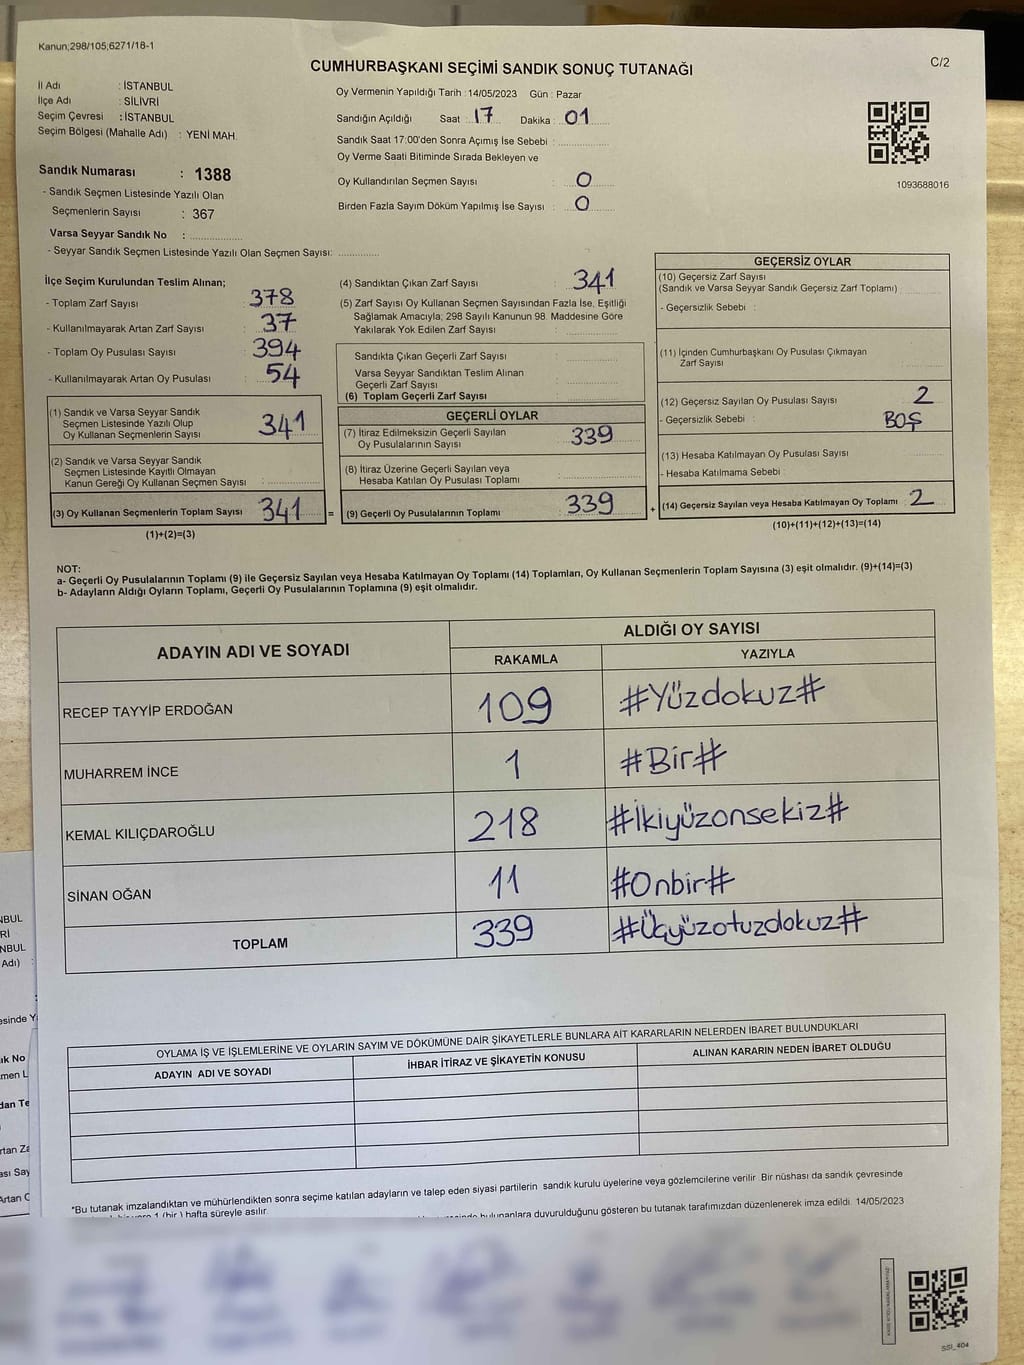 Kanun;298/105;6271/18-1
C/2
CUMHURBAŞKANI SEÇİMİ SANDIK SONUÇ TUTANAĞI
İl Adı : İSTANBUL
İlçe Adı : SİLİVRİ
Seçim Çevresi : İSTANBUL
Seçim Bölgesi (Mahalle Adı) : YENİ MAH.
Sandık Numarası : 1388
- Sandık Seçmen Listesinde Yazılı Olan
Seçmenlerin Sayısı : 367
Varsa Seyyar Sandık No : ....................
- Seyyar Sandık Seçmen Listesinde Yazılı Olan Seçmen Sayısı: ..............
Oy Vermenin Yapıldığı Tarih : 14/05/2023 Gün : Pazar
Sandığın Açıldığı Saat : 17 Dakika : 01
Sandık Saat 17:00'den Sonra Açımış İse Sebebi : ....................
Oy Verme Saati Bitiminde Sırada Bekleyen ve
Oy Kullandırılan Seçmen Sayısı : 0
Birden Fazla Sayım Döküm Yapılmış İse Sayısı : 0
1093688016
İlçe Seçim Kurulundan Teslim Alınan;
- Toplam Zarf Sayısı : 378
- Kullanılmayarak Artan Zarf Sayısı : 37
- Toplam Oy Pusulası Sayısı : 394
- Kullanılmayarak Artan Oy Pusulası : 54
(1) Sandık ve Varsa Seyyar Sandık
Seçmen Listesinde Yazılı Olup
Oy Kullanan Seçmenlerin Sayısı 341
(2) Sandık ve Varsa Seyyar Sandık
Seçmen Listesinde Kayıtlı Olmayan
Kanun Gereği Oy Kullanan Seçmen Sayısı : ..............
(3) Oy Kullanan Seçmenlerin Toplam Sayısı 341 =
(1)+(2)=(3)
(4) Sandıktan Çıkan Zarf Sayısı : 341
(5) Zarf Sayısı Oy Kullanan Seçmen Sayısından Fazla İse, Eşitliği
Sağlamak Amacıyla; 298 Sayılı Kanunun 98. Maddesine Göre
Yakılarak Yok Edilen Zarf Sayısı : ..............
Sandıkta Çıkan Geçerli Zarf Sayısı : ..............
Varsa Seyyar Sandıktan Teslim Alınan
Geçerli Zarf Sayısı : ..............
(6) Toplam Geçerli Zarf Sayısı : ..............
GEÇERLİ OYLAR
(7) İtiraz Edilmeksizin Geçerli Sayılan
Oy Pusulalarının Sayısı : 339
(8) İtiraz Üzerine Geçerli Sayılan veya
Hesaba Katılan Oy Pusulası Toplamı : ..............
(9) Geçerli Oy Pusulalarının Toplamı : 339 +
GEÇERSİZ OYLAR
(10) Geçersiz Zarf Sayısı
(Sandık ve Varsa Seyyar Sandık Geçersiz Zarf Toplamı) ..............
- Geçersizlik Sebebi :
(11) İçinden Cumhurbaşkanı Oy Pusulası Çıkmayan
Zarf Sayısı ..............
(12) Geçersiz Sayılan Oy Pusulası Sayısı 2
- Geçersizlik Sebebi : BOŞ
(13) Hesaba Katılmayan Oy Pusulası Sayısı ..............
- Hesaba Katılmama Sebebi :
(14) Geçersiz Sayılan veya Hesaba Katılmayan Oy Toplamı 2
(10)+(11)+(12)+(13)=(14)
NOT:
a- Geçerli Oy Pusulalarının Toplamı (9) ile Geçersiz Sayılan veya Hesaba Katılmayan Oy Toplamı (14) Toplamları, Oy Kullanan Seçmenlerin Toplam Sayısına (3) eşit olmalıdır. (9)+(14)=(3)
b- Adayların Aldığı Oyların Toplamı, Geçerli Oy Pusulalarının Toplamına (9) eşit olmalıdır.
ADAYIN ADI VE SOYADI
ALDIĞI OY SAYISI
RAKAMLA YAZIYLA
RECEP TAYYİP ERDOĞAN 109 #Yüzdokuz#
MUHARREM İNCE 1 #Bir#
KEMAL KILIÇDAROĞLU 218 #İkiyüzonsekiz#
SİNAN OĞAN 11 #Onbir#
TOPLAM 339 #Üçyüzotuzdokuz#
OYLAMA İŞ VE İŞLEMLERİNE VE OYLARIN SAYIM VE DÖKÜMÜNE DAİR ŞİKAYETLERLE BUNLARA AİT KARARLARIN NELERDEN İBARET BULUNDUKLARI
ADAYIN ADI VE SOYADI İHBAR İTİRAZ VE ŞİKAYETİN KONUSU ALINAN KARARIN NEDEN İBARET OLDUĞU
*Bu tutanak imzalandıktan ve mühürlendikten sonra seçime katılan adayların ve talep eden siyasi partilerin sandık kurulu üyelerine veya gözlemcilerine verilir. Bir nüshası da sandık çevresinde
1 (bir) hafta süreyle asılır. bulunanlara duyurulduğunu gösteren bu tutanak tarafımızdan düzenlenerek imza edildi. 14/05/2023
SSİ_404
NBUL
Rİ
NBUL
Adı) :
esinde Y
ık No
men L
dan Te
rtan Za
ası Say
Artan O